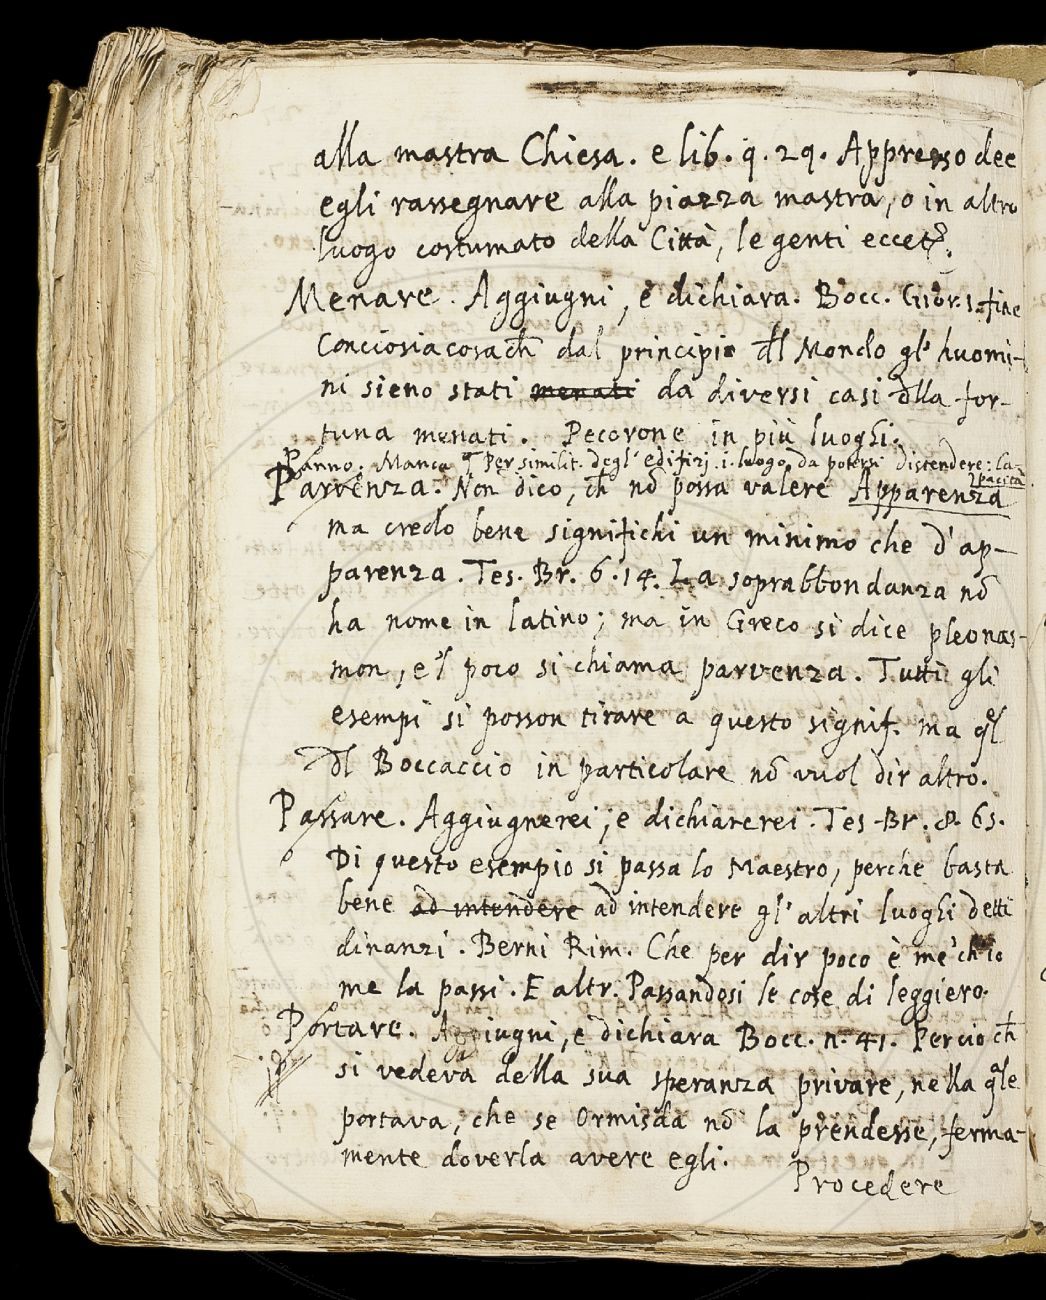 alla mastra Chiesa. e lib. q. 29. Appresso dee
egli rassegnare alla piazza mastra, o in altro
luogo costumato della Città, le genti eccet.
Menare. Aggiugni, e dichiara. Bocc. Gior. 1. fine
Conciosiacosach̄ dal principio dl Mondo gl' huomi-
ni sieno stati menati da diversi casi dlla for-
tuna menati. Pecorone in più luoghi.
Panno. Manca Per similit. degl' edifizj. i. luogo da potersi distendere: ca-
pacità
Parvenza. Non dico, ch̄ nō possa valere Apparenza
ma credo bene significhi un minimo che d'ap-
parenza. Tes. Br. 6. 14. La soprabbondanza nō
ha nome in latino; ma in Greco si dice pleonas-
mon, e 'l poco si chiama parvenza. Tutti gli
esempi si posson tirare a questo signif. ma ql
dl Boccaccio in particolare nō vuol dir altro.
Passare. Aggiugnerei, e dichiarerei. Tes. Br. 8. 65.
Di questo esempio si passa lo Maestro, perche basta
bene ad intendere ad intendere gl' altri luoghi detti
dinanzi. Berni Rim. Che per dir poco è me' ch'io
me la passi. E altr. Passandosi le cose di leggiero.
Portare. Aggiugni, e dichiara Bocc. n. 41. Percioch̄
si vedeva della sua speranza privare, nella qle
portava, che se Ormisda nō la prendesse, ferma-
mente doverla avere egli.
Procedere